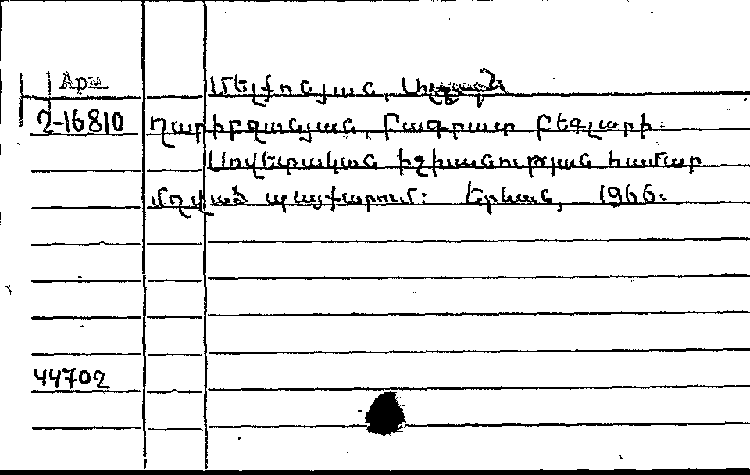 Արև Մելքոնյան,
2-16810 Ղարիբջանյան, Բագրատ Բեգլարի
Սովետական իշխանության համար
մղված պայքարում: Երևան, 1966.
44702